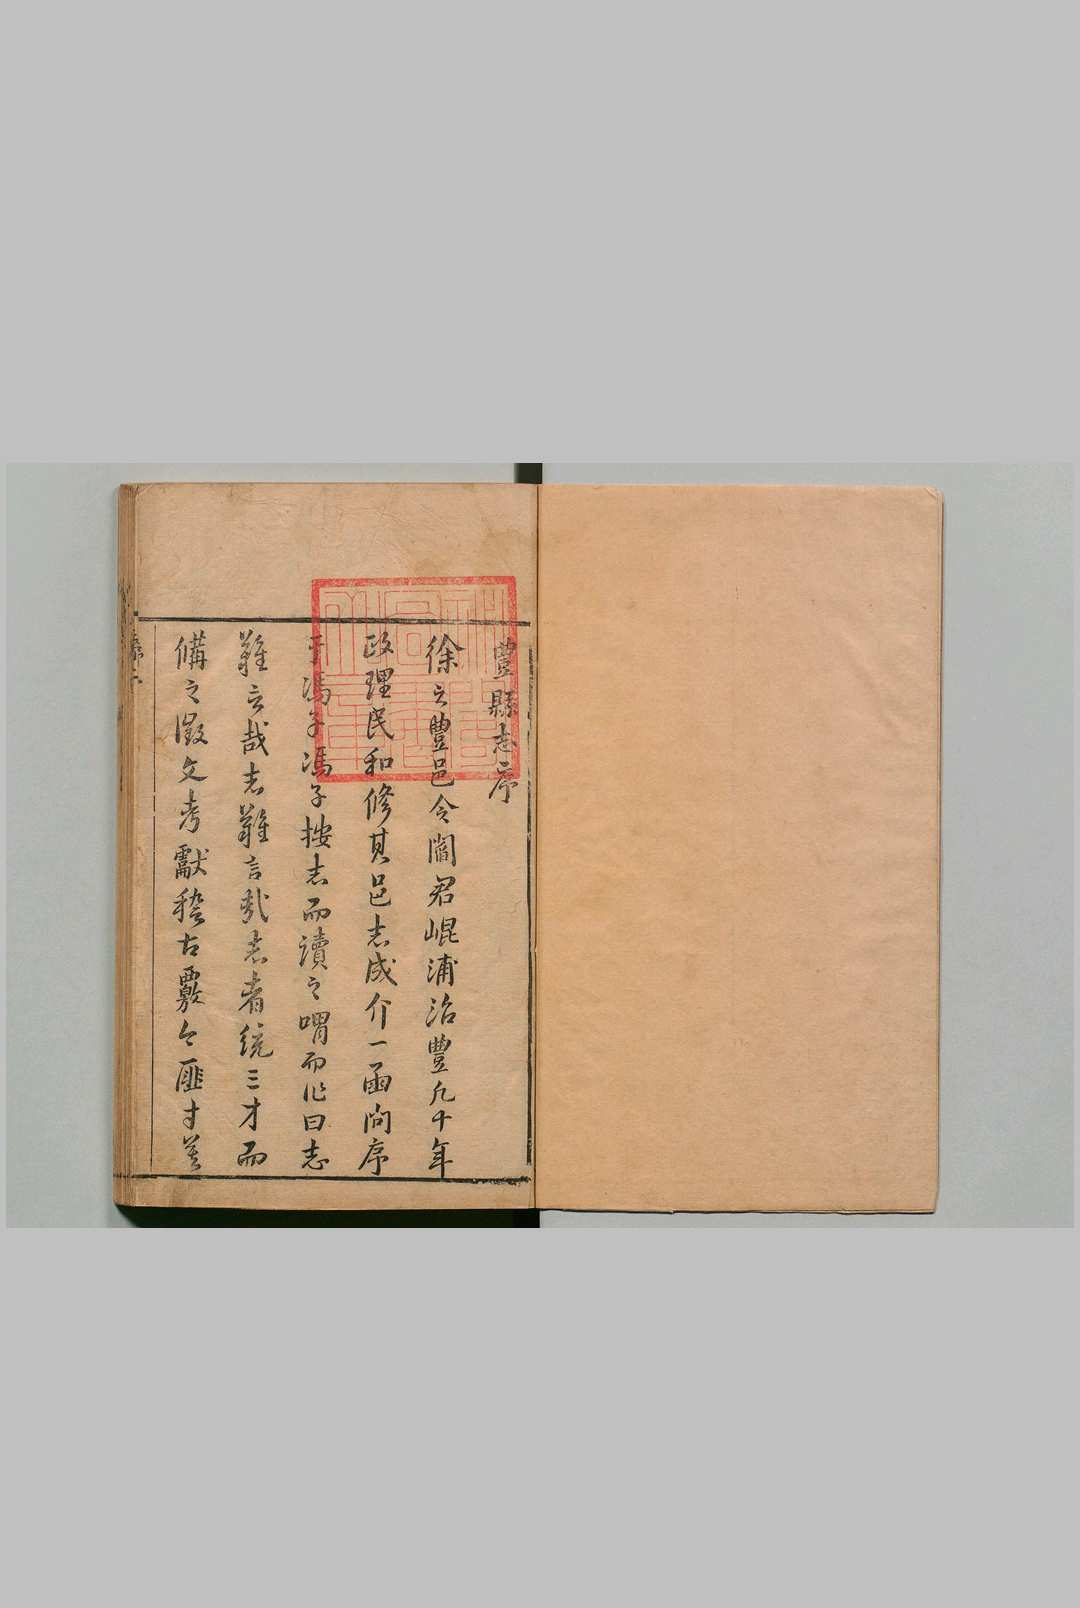 豐縣志序
徐之豐邑令閻君崐浦治豐凡十年
政理民和修其邑志成介一函問序
于馮子馮子按志而讀之喟而作曰志
難言哉志難言哉志者統三才而
備之徵文考獻稽古覈今匪才莫
序一